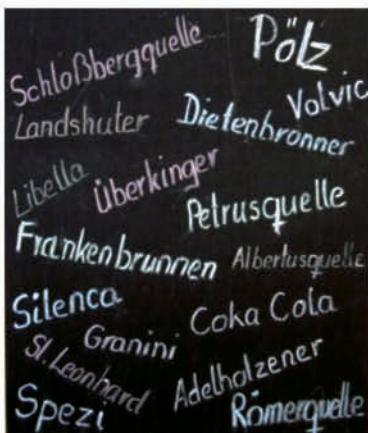 Schloßbergquelle
Pölz
Volvic
Landshuter
Dietenbronner
Libella
Überkinger
Petrusquelle
Frankenbrunnen
Albertusquelle
Silenca
Coka Cola
Granini
St. Leonhard
Adelholzener
Spezi
Römerquelle